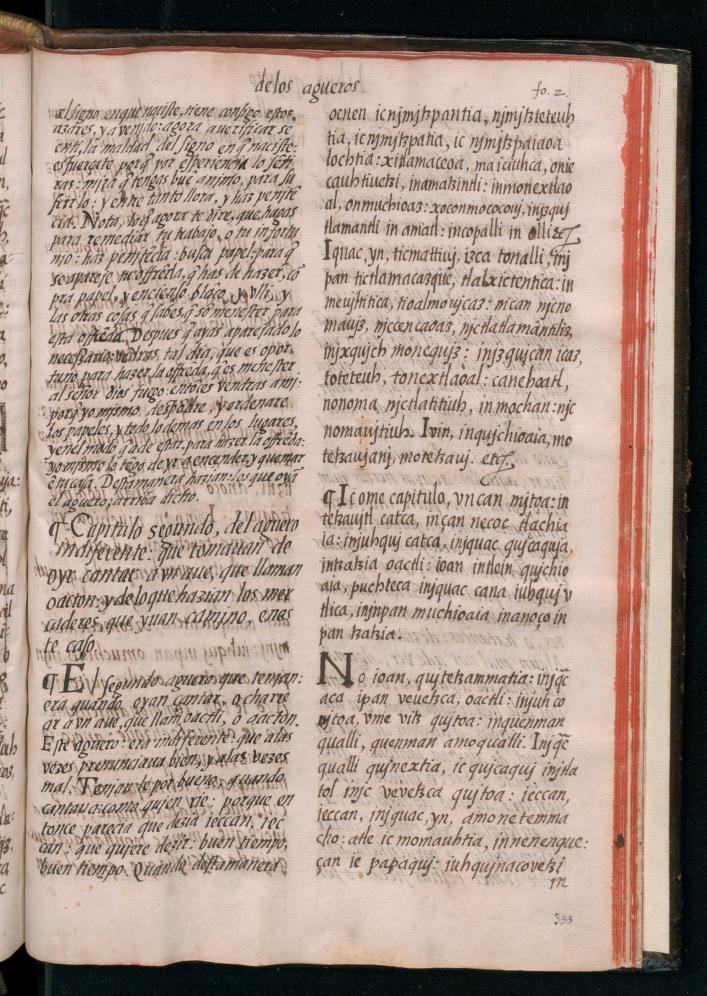 de los agueros
fo. 2.
el signo en que naciste, tiene consigo estos
azares, y a venido: agora a uerificar se
en ti, la maldad del signo en q̄ naciste:
esfuercate porq̄ por esperiencia lo senti
ras: mira q̄ tengas bue animo, para su
frirlo: y entre tanto llora, y haz penitē
cia. Nota, lo q̄ agora te dire, que hagas
para remediar tu trabajo, o tu infortu
nio: haz penitēcia: busca papel: para q̄
se apareje tu offrēda, q̄ has de hazer, cō
pra papel, y encienso blāco, y vlli, y
las otras cosas q̄ sabes, q̄ sō menester para
esta offrēda. Despues q̄ ayas aparejado lo
necessario: vēdras, tal dia, que es opor
tuno para hazer la offrēda, q̄ es menester
al señor dios fuego: entōces vendras a mj:
porq̄ yo mismo despōdre, y ordenare
los papeles, y todo lo demas en los lugares,
y en el modo q̄ a de estar, para hazer la offrēda:
yo mismo lo tēgo de yr a encender, y quemar
ē tu casa. Desta manera hazian: los que oyā
el aguero: arriba dicto.
¶ Capitulo segundo, del aguero
indiferente: que tomauan de
oyr cantar a vn aue, que llaman
oacton: y de lo que hazian los mer
caderes que yuan camjno, en es
te caso.
¶ El segundo aguero que tenjan:
era quando oyan cantar, o charre
ar a vn aue, que llamā oactli, o oacton.
Este aguero: era indiferente: que a las
vezes pronunciaua bien, y a las vezes
mal. Tenjan le por bueno, quando
cantaua: como quien rie: porque en
tonce parecia que dezia ieccan, iec
can: que quiere dezir: buen tiempo,
buen tiempo. Quādo desta manera
ocnen ic njmjtzpantia, njmjtzteteuh
tia, ic njmjtzpatia, ic njmjtzpaiaoa
lochtia: xitlamaceoa, ma iciuhca, onie
cauhtiuetzi, in amatzintli: in monextlao
al, on muchioaz: xoconmococouj, injzquj
tlamantli in amatl: in copalli in olli etc̄
Iquac, yn, ticmattiuj, izca tonalli, inj
pan tictlamacazque, tlalxictentica: in
meujltitica, tioalmoujcaz: njcan njcno
maujz, njccencaoaz, njctlatlamantiliz,
injxqujch monequjz: injzqujcan icaz,
toteteuh, tonextlaoal: ca nehoatl,
nonoma njctlatitiuh, in mochan: njc
nomaujtiuh. Ivin, inqujchioaia, mo
tetzaujanj, motetzauj. etc̄
¶ Ic ome capitulo, vncan mjtoa: in
tetzaujtl catca, in çan necoc tlachia
ia: injuhquj catca, injquac qujcaquja,
intzatzia oactli: ioan in tlein qujchio
aia, puchteca injquac cana iuhquj v
tlica, injnpan muchioaia in anoço in
pan tzatzia.
No ioan, qujtetzammatia: injq̄c
aca ipan veuetzca, oactli: injuh co
mjtoa, vme vitz qujtoa: in quenman
qualli, quenman amo qualli. Injq̄c
qualli qujnextia, ic qujcaquj injtla
tol injc veuetzca qujtoa: ieccan,
ieccan, injquac, yn, amo netemma
cho: atle ic momauhtia, in nenenque:
çan ie papaquj: iuhqujnacovetzi
in
333